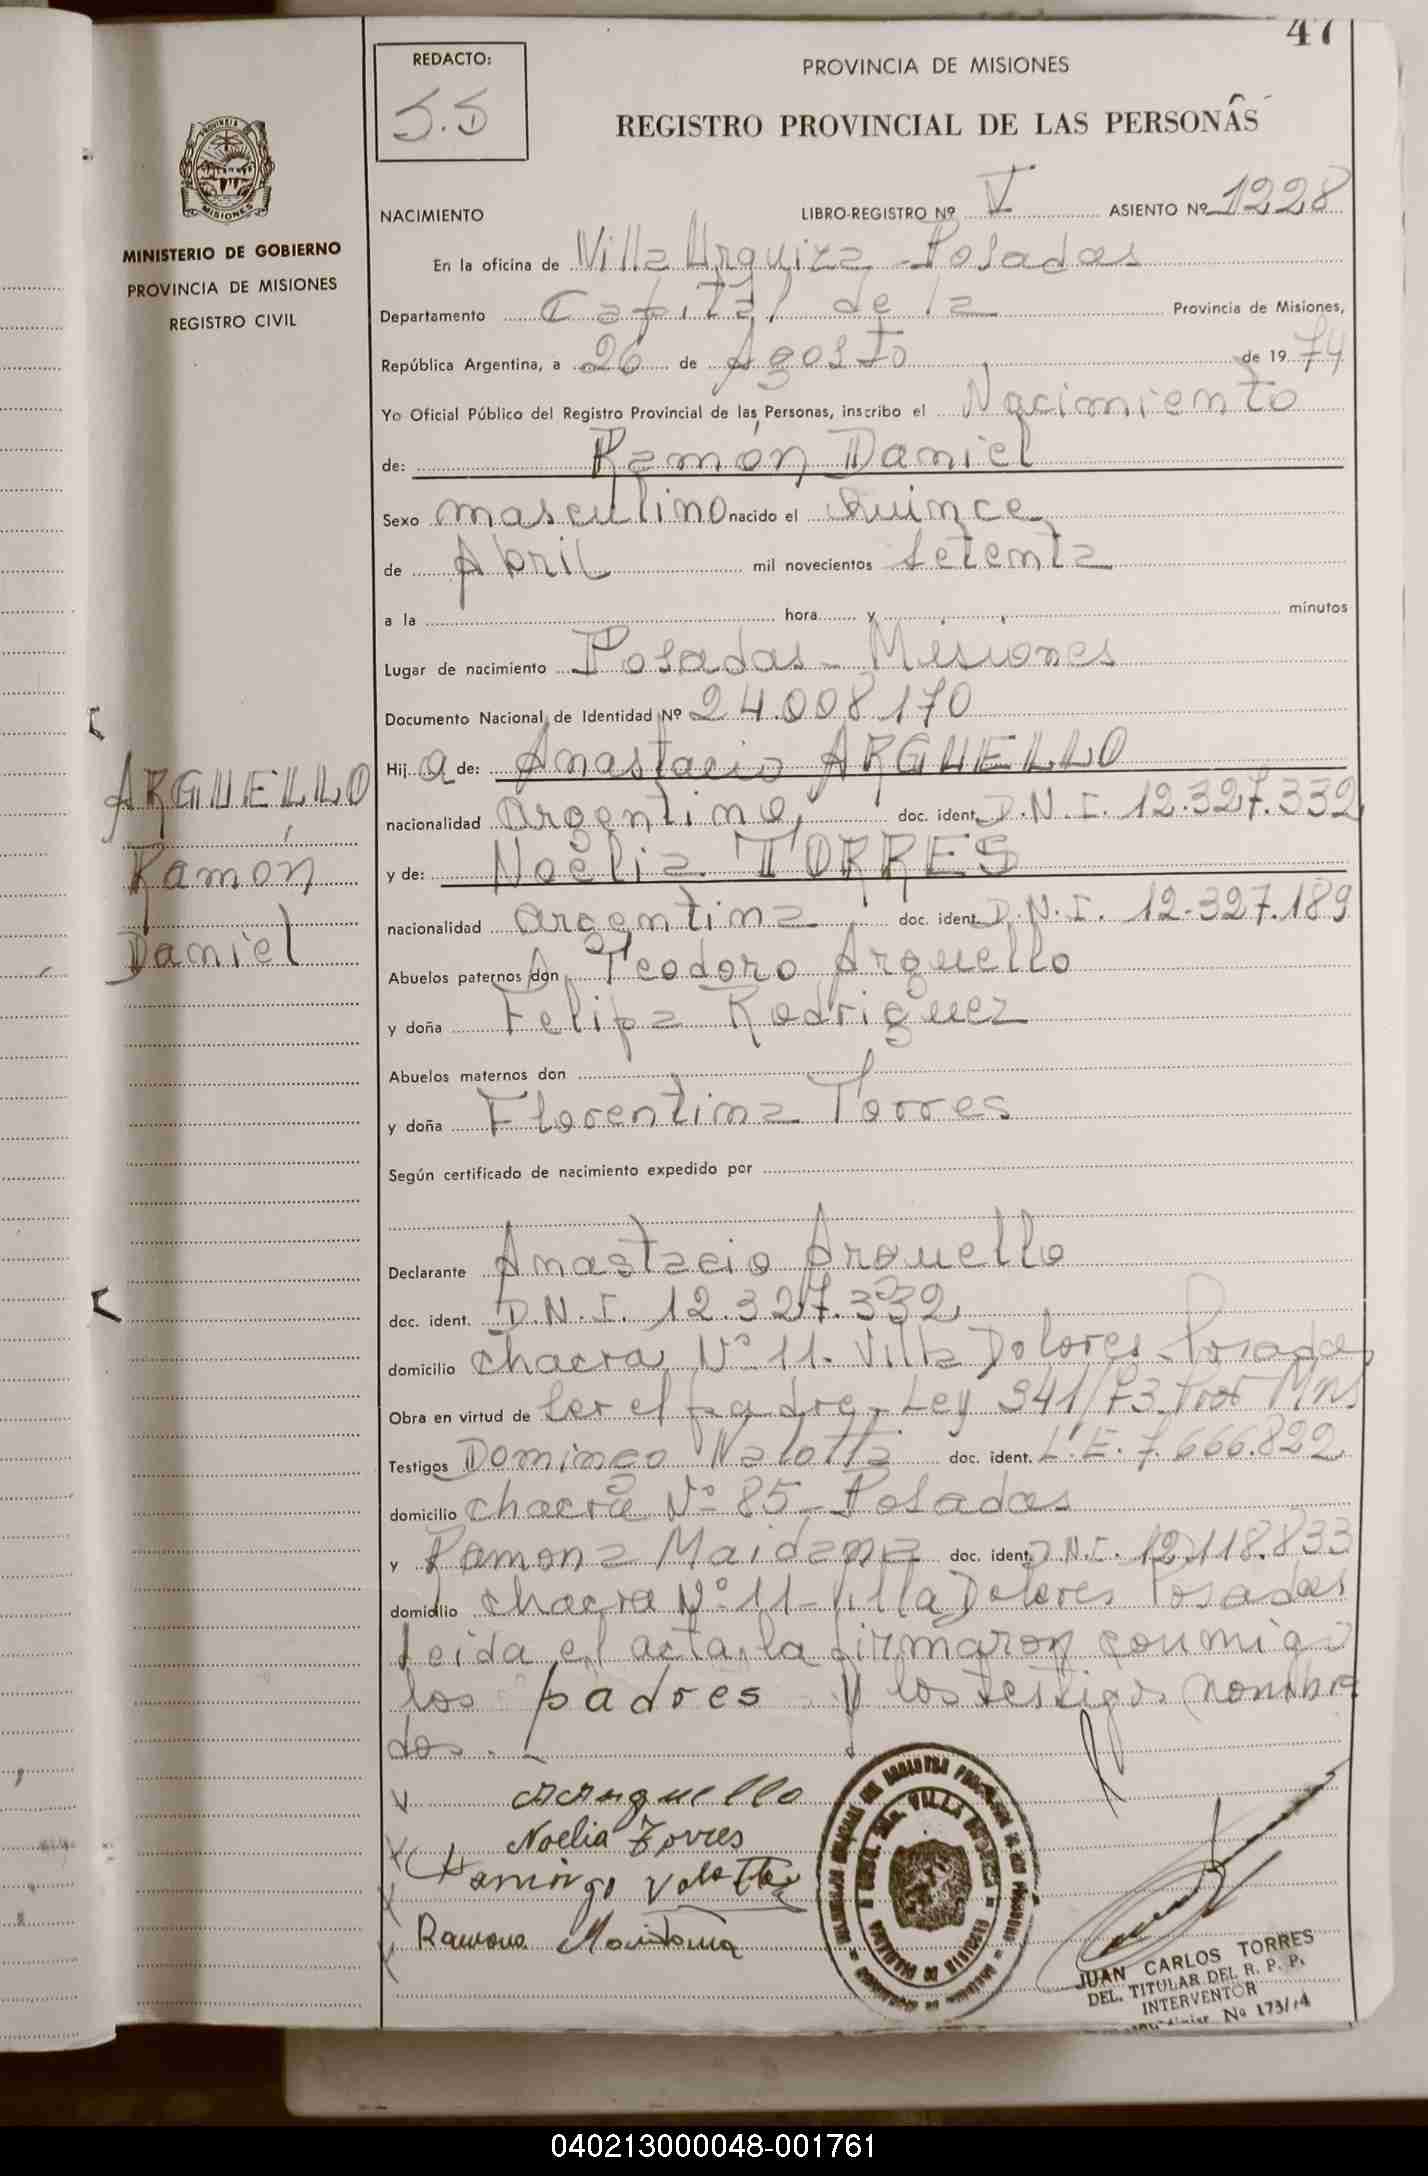 47
REDACTO:
S.S
PROVINCIA DE MISIONES
REGISTRO PROVINCIAL DE LAS PERSONAS
PROVINCIA DE
MISIONES
MINISTERIO DE GOBIERNO
PROVINCIA DE MISIONES
REGISTRO CIVIL
NACIMIENTO LIBRO-REGISTRO Nº V ASIENTO Nº 1228
En la oficina de Villa Urquiza - Posadas
Departamento Capital de la Provincia de Misiones,
República Argentina, a 26 de Agosto de 1974
Yo Oficial Público del Registro Provincial de las Personas, inscribo el Nacimiento
de: Ramón Daniel
Sexo masculino nacido el Quince
de Abril mil novecientos Setenta
a la hora y minutos
Lugar de nacimiento Posadas - Misiones
Documento Nacional de Identidad Nº 24.008.170
Hijo de: Anastacio ARGUELLO
nacionalidad argentino doc. ident. D.N.I. 12.327.332
y de: Noelia TORRES
nacionalidad argentina doc. ident. D.N.I. 12.327.189
Abuelos paternos don Teodoro Arguello
y doña Felipa Rodriguez
Abuelos maternos don
y doña Florentina Torres
Según certificado de nacimiento expedido por
Declarante Anastacio Arguello
doc. ident. D.N.I. 12.327.332
domicilio chacra Nº 11. Villa Dolores Posadas
Obra en virtud de Ser el padre. Ley 341/73
Testigos Domingo doc. ident. L.E. 7.666.822
domicilio chacra Nº 85 - Posadas
y Ramona Maidana doc. ident. D.N.I. 12.118.833
domicilio chacra Nº 11 - Villa Dolores Posadas
Leida el acta, la firmaron conmigo
los padres y los testigos nombra
dos. -
ARGUELLO
Ramón
Daniel
Noelia Torres
Ramona
JUAN CARLOS TORRES
DEL. TITULAR DEL R. P. P.
INTERVENTOR
Nº 173/74
040213000048-001761